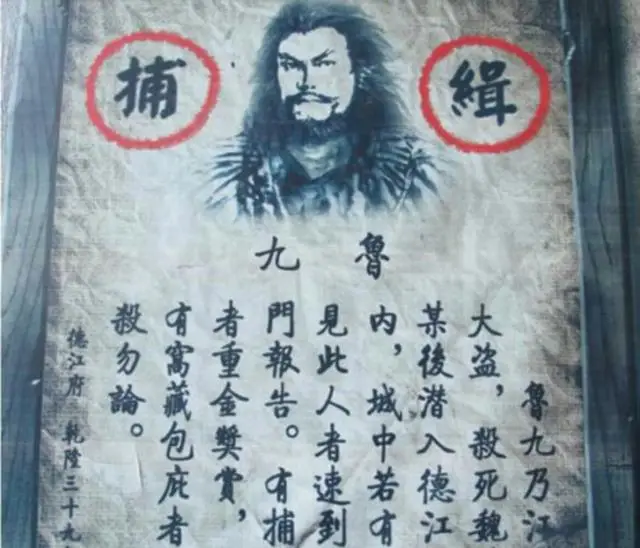 緝捕
魯九
魯九乃江
大盗,殺死魏
某後潜入德江
内,城中若有
見此人者速到
門報告。有捕
者重金獎賞,
有窩藏包庇者
殺勿論。
德江府 乾隆三十九